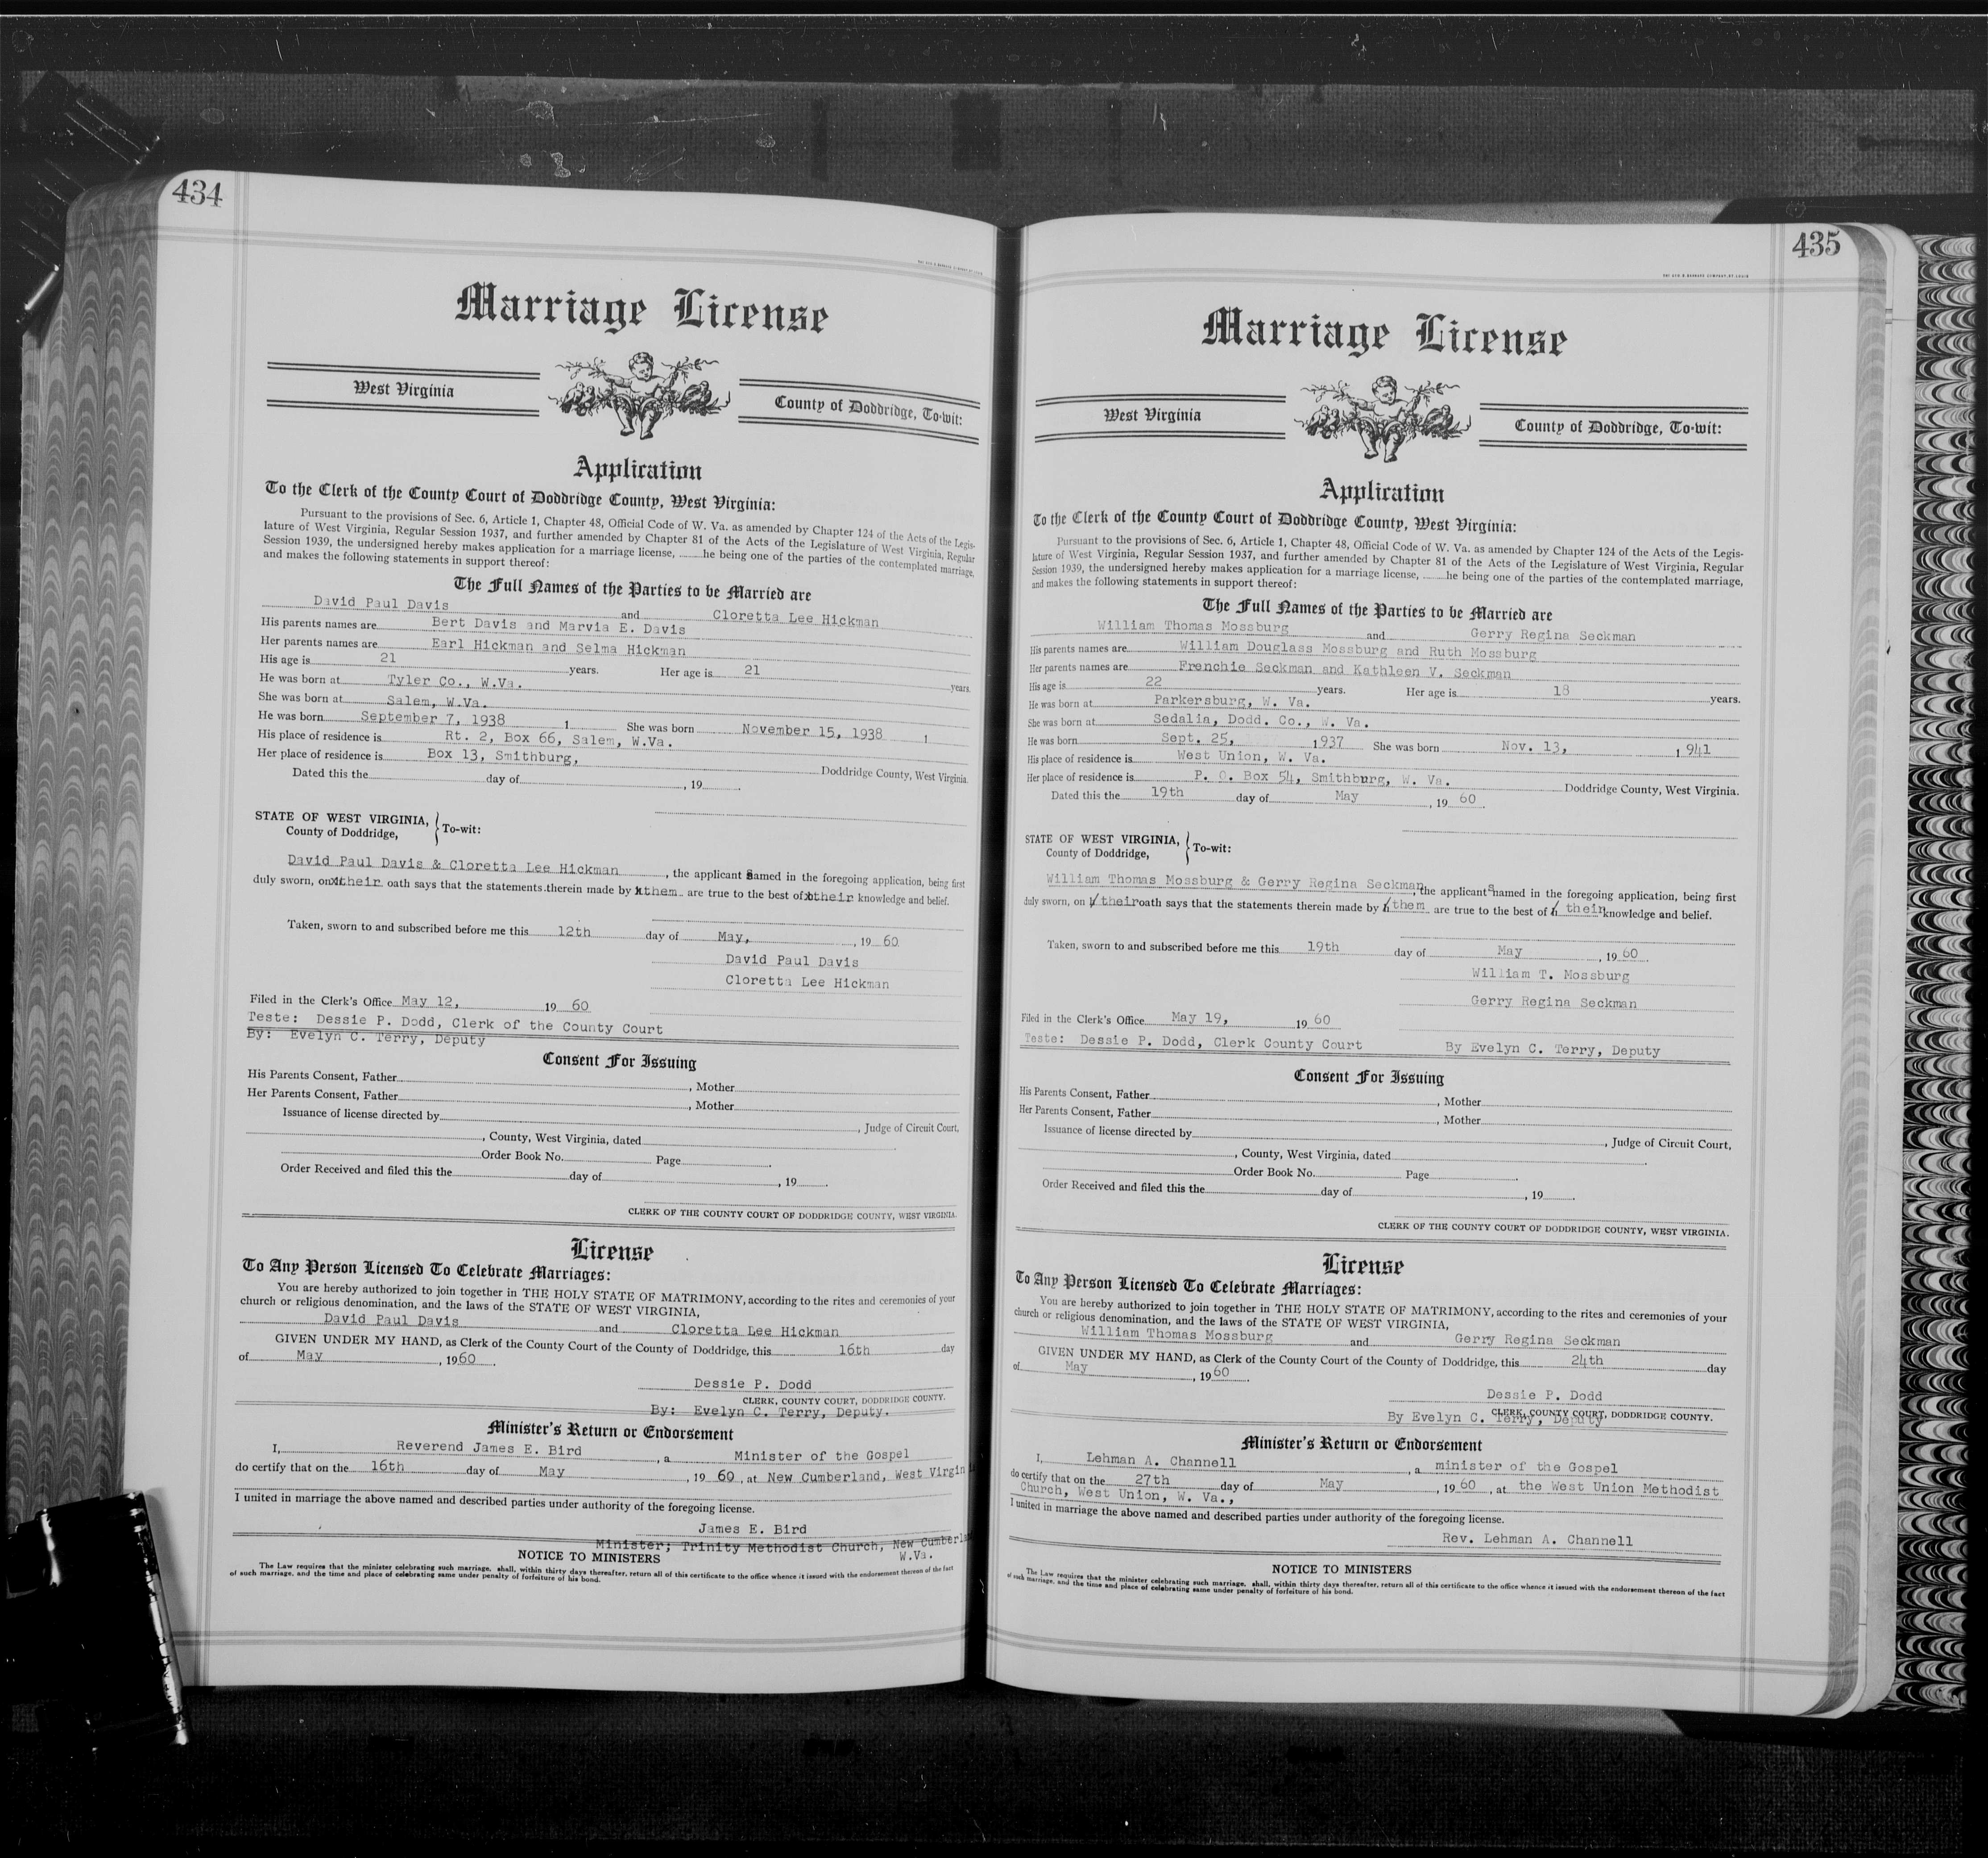 434
Marriage License
West Virginia
County of Doddridge, To-wit:
Application
To the Clerk of the County Court of Doddridge County, West Virginia:
Pursuant to the provisions of Sec. 6, Article 1, Chapter 48, Official Code of W. Va. as amended by Chapter 124 of the Acts of the Legis-
lature of West Virginia, Regular Session 1937, and further amended by Chapter 81 of the Acts of the Legislature of West Virginia, Regular
Session 1939, the undersigned hereby makes application for a marriage license, ........he being one of the parties of the contemplated marriage,
and makes the following statements in support thereof:
The Full Names of the Parties to be Married are
David Paul Davis and Cloretta Lee Hickman
His parents names are Bert Davis and Marvia E. Davis
Her parents names are Earl Hickman and Selma Hickman
His age is 21 years. Her age is 21 years.
He was born at Tyler Co., W.Va.
She was born at Salem, W.Va.
He was born September 7, 1938 1 She was born November 15, 1938 1
His place of residence is Rt. 2, Box 66, Salem, W.Va.
Her place of residence is Box 13, Smithburg, Doddridge County, West Virginia.
Dated this the day of , 19 .
STATE OF WEST VIRGINIA,
County of Doddridge, To-wit:
David Paul Davis & Cloretta Lee Hickman , the applicant samed in the foregoing application, being first
duly sworn, on their oath says that the statements therein made by them are true to the best of their knowledge and belief.
Taken, sworn to and subscribed before me this 12th day of May, , 19 60
David Paul Davis
Cloretta Lee Hickman
Filed in the Clerk's Office May 12, 19 60
Teste: Dessie P. Dodd, Clerk of the County Court
By: Evelyn C. Terry, Deputy
Consent For Issuing
His Parents Consent, Father , Mother
Her Parents Consent, Father , Mother
Issuance of license directed by , Judge of Circuit Court,
, County, West Virginia, dated .
Order Book No. Page .
Order Received and filed this the day of , 19 .
CLERK OF THE COUNTY COURT OF DODDRIDGE COUNTY, WEST VIRGINIA.
License
To Any Person Licensed To Celebrate Marriages:
You are hereby authorized to join together in THE HOLY STATE OF MATRIMONY, according to the rites and ceremonies of your
church or religious denomination, and the laws of the STATE OF WEST VIRGINIA,
David Paul Davis and Cloretta Lee Hickman
GIVEN UNDER MY HAND, as Clerk of the County Court of the County of Doddridge, this 16th day
of May , 1960 .
Dessie P. Dodd
CLERK, COUNTY COURT, DODDRIDGE COUNTY.
By: Evelyn C. Terry, Deputy.
Minister's Return or Endorsement
I, Reverend James E. Bird , a Minister of the Gospel
do certify that on the 16th day of May , 19 60 , at New Cumberland, West Virgin
I united in marriage the above named and described parties under authority of the foregoing license.
James E. Bird
Minister; Trinity Methodist Church, New Cumberla
W.Va.
NOTICE TO MINISTERS
The Law requires that the minister celebrating such marriage, shall, within thirty days thereafter, return all of this certificate to the office whence it issued with the endorsement thereon of the fact
of such marriage, and the time and place of celebrating same under penalty of forfeiture of his bond.
435
Marriage License
West Virginia
County of Doddridge, To-wit:
Application
To the Clerk of the County Court of Doddridge County, West Virginia:
Pursuant to the provisions of Sec. 6, Article 1, Chapter 48, Official Code of W. Va. as amended by Chapter 124 of the Acts of the Legis-
lature of West Virginia, Regular Session 1937, and further amended by Chapter 81 of the Acts of the Legislature of West Virginia, Regular
Session 1939, the undersigned hereby makes application for a marriage license, ........he being one of the parties of the contemplated marriage,
and makes the following statements in support thereof:
The Full Names of the Parties to be Married are
William Thomas Mossburg and Gerry Regina Seckman
His parents names are William Douglass Mossburg and Ruth Mossburg
Her parents names are Frenchie Seckman and Kathleen V. Seckman
His age is 22 years. Her age is 18 years.
He was born at Parkersburg, W. Va.
She was born at Sedalia, Dodd. Co., W. Va.
He was born Sept. 25, 1937 She was born Nov. 13, , 1941
His place of residence is West Union, W. Va.
Her place of residence is P. O. Box 54, Smithburg, W. Va. Doddridge County, West Virginia.
Dated this the 19th day of May , 19 60 .
STATE OF WEST VIRGINIA,
County of Doddridge, To-wit:
William Thomas Mossburg & Gerry Regina Seckman, the applicants named in the foregoing application, being first
duly sworn, on their oath says that the statements therein made by them are true to the best of their knowledge and belief.
Taken, sworn to and subscribed before me this 19th day of May , 19 60 .
William T. Mossburg
Gerry Regina Seckman
Filed in the Clerk's Office May 19, 19 60
Teste: Dessie P. Dodd, Clerk County Court By Evelyn C. Terry, Deputy
Consent For Issuing
His Parents Consent, Father , Mother
Her Parents Consent, Father , Mother
Issuance of license directed by , Judge of Circuit Court,
, County, West Virginia, dated .
Order Book No. Page .
Order Received and filed this the day of , 19 .
CLERK OF THE COUNTY COURT OF DODDRIDGE COUNTY, WEST VIRGINIA.
License
To Any Person Licensed To Celebrate Marriages:
You are hereby authorized to join together in THE HOLY STATE OF MATRIMONY, according to the rites and ceremonies of your
church or religious denomination, and the laws of the STATE OF WEST VIRGINIA,
William Thomas Mossburg and Gerry Regina Seckman
GIVEN UNDER MY HAND, as Clerk of the County Court of the County of Doddridge, this 24th day
of May , 1960 .
Dessie P. Dodd
CLERK, COUNTY COURT, DODDRIDGE COUNTY.
By Evelyn C. Terry, Deputy
Minister's Return or Endorsement
I, Lehman A. Channell , a minister of the Gospel
do certify that on the 27th day of May , 19 60 , at the West Union Methodist
Church, West Union, W. Va.,
I united in marriage the above named and described parties under authority of the foregoing license.
Rev. Lehman A. Channell
NOTICE TO MINISTERS
The Law requires that the minister celebrating such marriage, shall, within thirty days thereafter, return all of this certificate to the office whence it issued with the endorsement thereon of the fact
of such marriage, and the time and place of celebrating same under penalty of forfeiture of his bond.